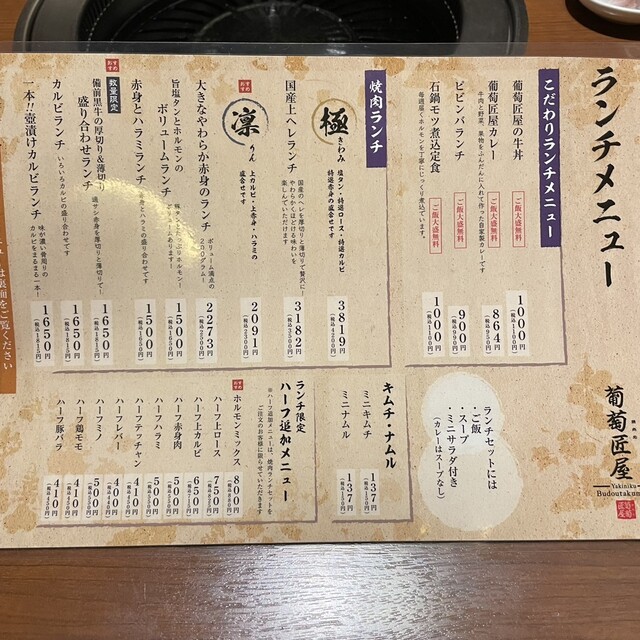 ランチメニュー
葡萄匠屋
Yakiniku
Budoutakumi
こだわりランチメニュー
葡萄匠屋の牛丼
ご飯大盛無料
1000円
(税込1100円)
葡萄匠屋カレー
牛肉と野菜、果物をふんだんに入れて作った自家製カレーです
ご飯大盛無料
864円
(税込950円)
ビビンバランチ
900円
(税込990円)
石鍋モツ煮込定食
毎週届くホルモンを丁寧にじっくり煮込んでいます。
ご飯大盛無料
1000円
(税込1100円)
焼肉ランチ
極 きわみ
塩タン・特選ロース・特選カルビ
特選赤身の盛合せです
3819円
(税込4200円)
国産上ヘレランチ
国産のヘレを厚切りと薄切りで贅沢に!
やわらかくほどける味わいを
楽しんでいただけます
3182円
(税込3500円)
おすすめ
凛 りん
上カルビ・上赤身・ハラミの
盛合せです
2091円
(税込2300円)
大きなやわらか赤身のランチ
ボリューム満点の
200グラム!
2273円
(税込2500円)
旨塩タンとホルモンの
ボリュームランチ
1500円
(税込1650円)
赤身とハラミランチ
赤身とハラミの盛り合わせです
1500円
(税込1650円)
おすすめ
数量限定
備前黒牛の厚切り&薄切り
盛り合わせランチ
過サシ赤身を厚切りと薄切りで!
1650円
(税込1815円)
カルビランチ
いろいろカルビの盛り合わせです
1650円
(税込1815円)
一本!!壺漬けカルビランチ
味が濃い骨周りの
カルビをまるまる一本!
1650円
(税込1815円)
ランチセットには
・ご飯
・スープ
・ミニサラダ付き
(カレーはスープなし)
キムチ・ナムル
ミニキムチ
137円
(税込150円)
ミニナムル
137円
(税込150円)
ランチ限定
ハーフ追加メニュー
※ハーフ追加メニューは、焼肉ランチセットを
ご注文のお客様に限らせていただきます
おすすめ
ホルモンミックス
ハーフ上ロース
750円
ハーフ上カルビ
ハーフ赤身肉
ハーフハラミ
ハーフテッチャン
410円
ハーフレバー
400円
ハーフミノ
500円
ハーフ鶏モモ
410円
ハーフ豚バラ
410円
は裏面をご覧ください